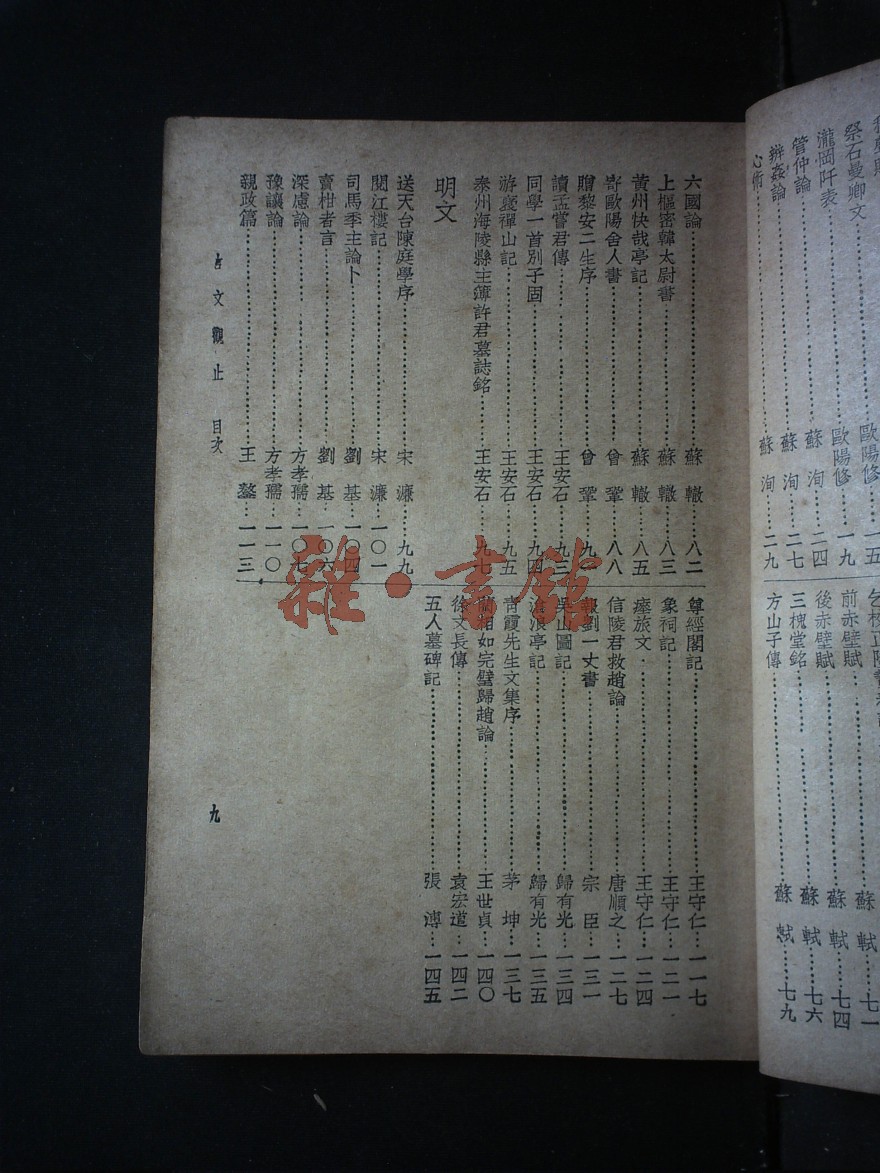 祭石曼卿文……歐陽修……一五
瀧岡阡表……歐陽修……一九
管仲論……蘇洵……二四
辨姦論……蘇洵……二七
心術……蘇洵……二九
前赤壁賦……蘇軾……七一
後赤壁賦……蘇軾……七四
三槐堂銘……蘇軾……七六
方山子傳……蘇軾……七九
六國論……蘇轍……八二
上樞密韓太尉書……蘇轍……八三
黃州快哉亭記……蘇轍……八五
寄歐陽舍人書……曾鞏……八八
贈黎安二生序……曾鞏……九
讀孟嘗君傳……王安石……九三
同學一首別子固……王安石……九四
游褒禪山記……王安石……九五
泰州海陵縣主簿許君墓誌銘……王安石……九七
明文
送天台陳庭學序……宋濂……九九
閱江樓記……宋濂……一〇一
司馬季主論卜……劉基……一〇四
賣柑者言……劉基……一〇六
深慮論……方孝孺……一〇七
豫讓論……方孝孺……一一〇
親政篇……王鏊……一一三
尊經閣記……王守仁……一一七
象祠記……王守仁……一二一
瘞旅文……王守仁……一二四
信陵君救趙論……唐順之……一二七
報劉一丈書……宗臣……一三一
吳山圖記……歸有光……一三四
滄浪亭記……歸有光……一三五
青霞先生文集序……茅坤……一三七
藺相如完璧歸趙論……王世貞……一四〇
徐文長傳……袁宏道……一四二
五人墓碑記……張溥……一四五
古文觀止 目次
九
雜·書館